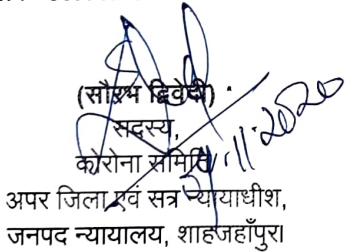 (सौरभ द्विवेदी)
सदस्य,
कोरोना समिति
अपर जिला एवं सत्र न्यायाधीश,
जनपद न्यायालय, शाहजहाँपुर।